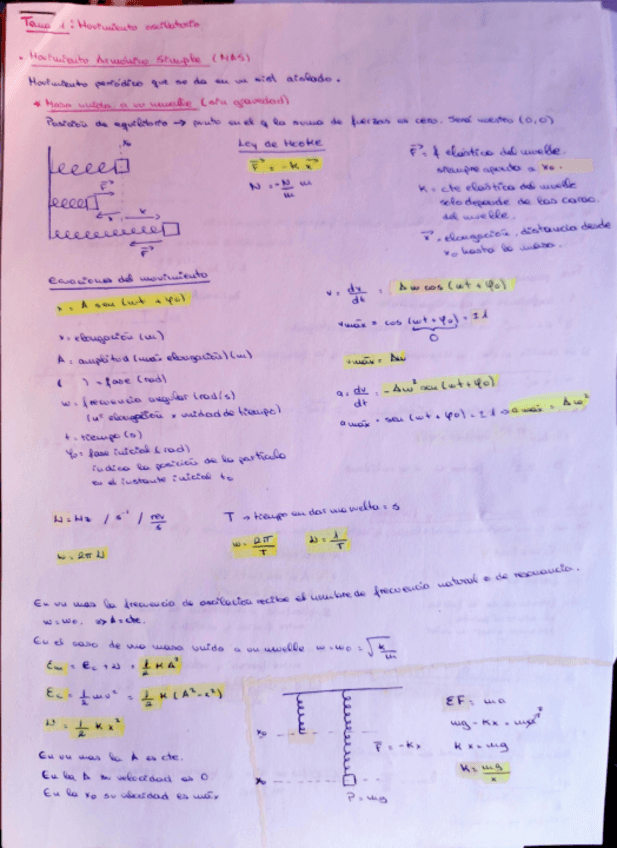 Tema 1: Movimiento oscilatorio
• Movimiento Armónico Simple (MAS)
Movimiento periódico que se da en un sist aislado.
* Masa unida a un muelle (sin gravedad)
Posición de equilibrio → punto en el q la suma de fuerzas es cero. Será nuestro (0,0)
x₀
F⃗
x
F⃗
Ley de Hooke
F⃗ = -K x⃗
N = -N/m m
F⃗ = f elástica del muelle.
siempre apunta a x₀.
K = cte elástica del muelle
solo depende de las carac.
del muelle.
x⃗ = elongación, distancia desde
x₀ hasta la masa.
Ecuaciones del movimiento
x = A sen (ωt + φ₀)
x = elongación (m)
A = amplitud (máx elongación) (m)
( ) = fase (rad)
ω = frecuencia angular (rad/s)
(nº elongación x unidad de tiempo)
t = tiempo (s)
φ₀ = fase inicial (rad)
indica la posición de la partícula
en el instante inicial t₀
v = dx/dt = Aω cos (ωt + φ₀)
vmáx = cos (ωt + φ₀) = ±1
0
vmáx = Aω
a = dv/dt = -Aω² sen (ωt + φ₀)
amáx = sen (ωt + φ₀) = ±1 → amáx = Aω²
ν = Hz / s⁻¹ / rev/s
T → tiempo en dar una vuelta = s
ω = 2π ν
ω = 2π/T
ν = 1/T
En un mas la frecuencia de oscilación recibe el nombre de frecuencia natural o de resonancia.
ω = ω₀. ⇒ A = cte.
En el caso de una masa unida a un muelle ω = ω₀ = √K/m
Em = Ec + U = 1/2 K A²
Ec = 1/2 mv² = 1/2 K (A² - x²)
U = 1/2 K x²
En un mas la A es cte.
En la A su velocidad es 0.
En la x₀ su velocidad es máx
x₀
F⃗ = -Kx
P = mg
ΣF = ma
mg - Kx = ma⁰
Kx = mg
K = mg/x